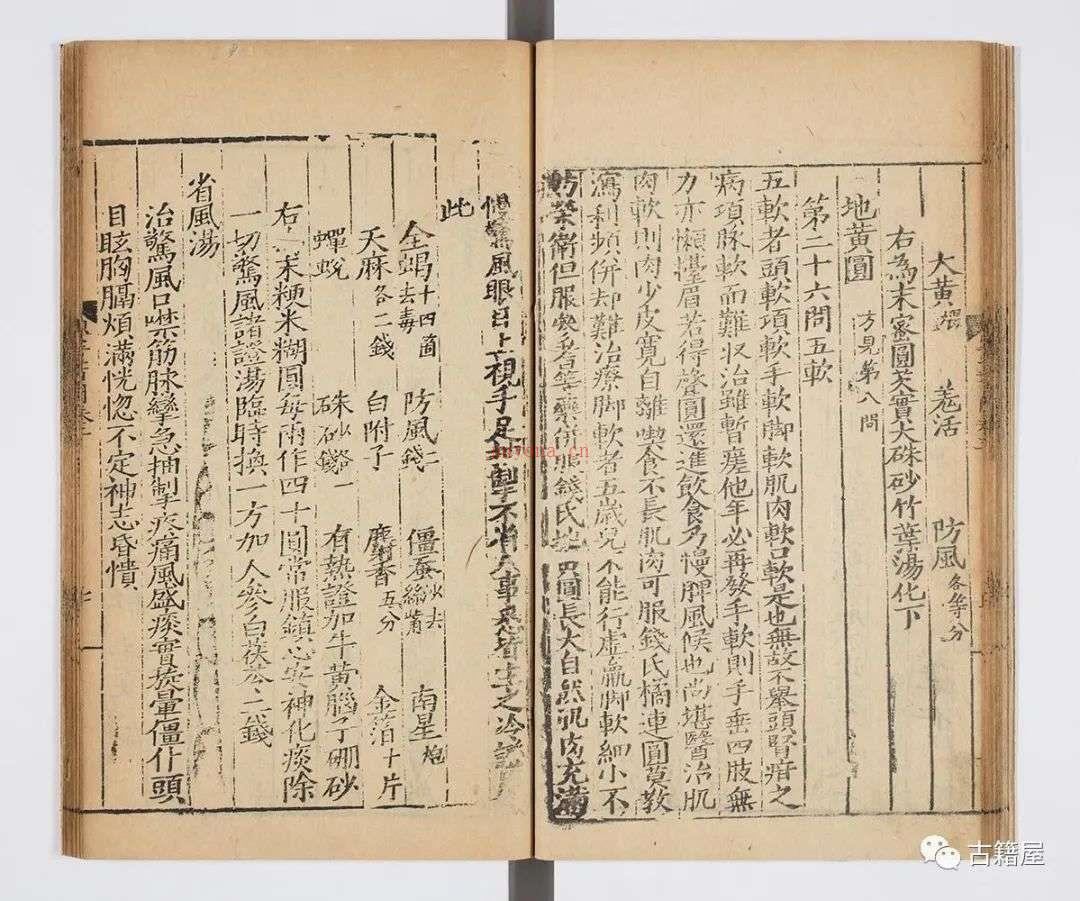 大黃煨 羗活 防風各等分
右為末蜜圓芡實大硃砂竹葉湯化下
地黃圓 方見第八問
第二十六問五軟
五軟者頭軟項軟手軟脚軟肌肉軟口軟是也無故不舉頭腎疳之
病項脉軟而難収治雖暫瘥他年必再發手軟則手垂四肢無
力亦懶擡眉若得聲圓還進飲食乃慢脾風候也尚堪醫治肌
肉軟則肉少皮寬自離喫食不長肌肉可服錢氏橘連圓莫教
瀉利頻併却難治療脚軟者五歲兒不能行虛羸脚軟細小不
妨榮衛但服參耆等藥併服錢氏地黃圓長大自然肌肉充滿
慢驚風眼目上視手足搐掣不省人事
此
全蝎十四箇去毒 防風二錢 僵蚕 南星炮
天麻各二錢 白附子 麝香五分 金箔十片
蟬蛻 硃砂一錢 有熱證加牛黃腦子硼砂
右為末粳米糊圓每兩作四十圓常服鎮心安神化痰除
一切驚風諸證湯臨時換一方加人參白茯苓二錢
省風湯
治驚風口噤筋脉攣急抽掣疼痛風盛痰實旋暈僵仆頭
目眩胸膈煩滿恍惚不定神志昏憒
古籍屋